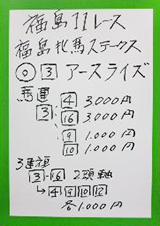 福島11レース
福島牝馬ステークス
◎ 3 アースライズ
馬連
3 4 3,000円
16 3,000円
9 1,000円
10 1,000円
3連複
3-16 2頭軸
→4 9 10 12
各1,000円